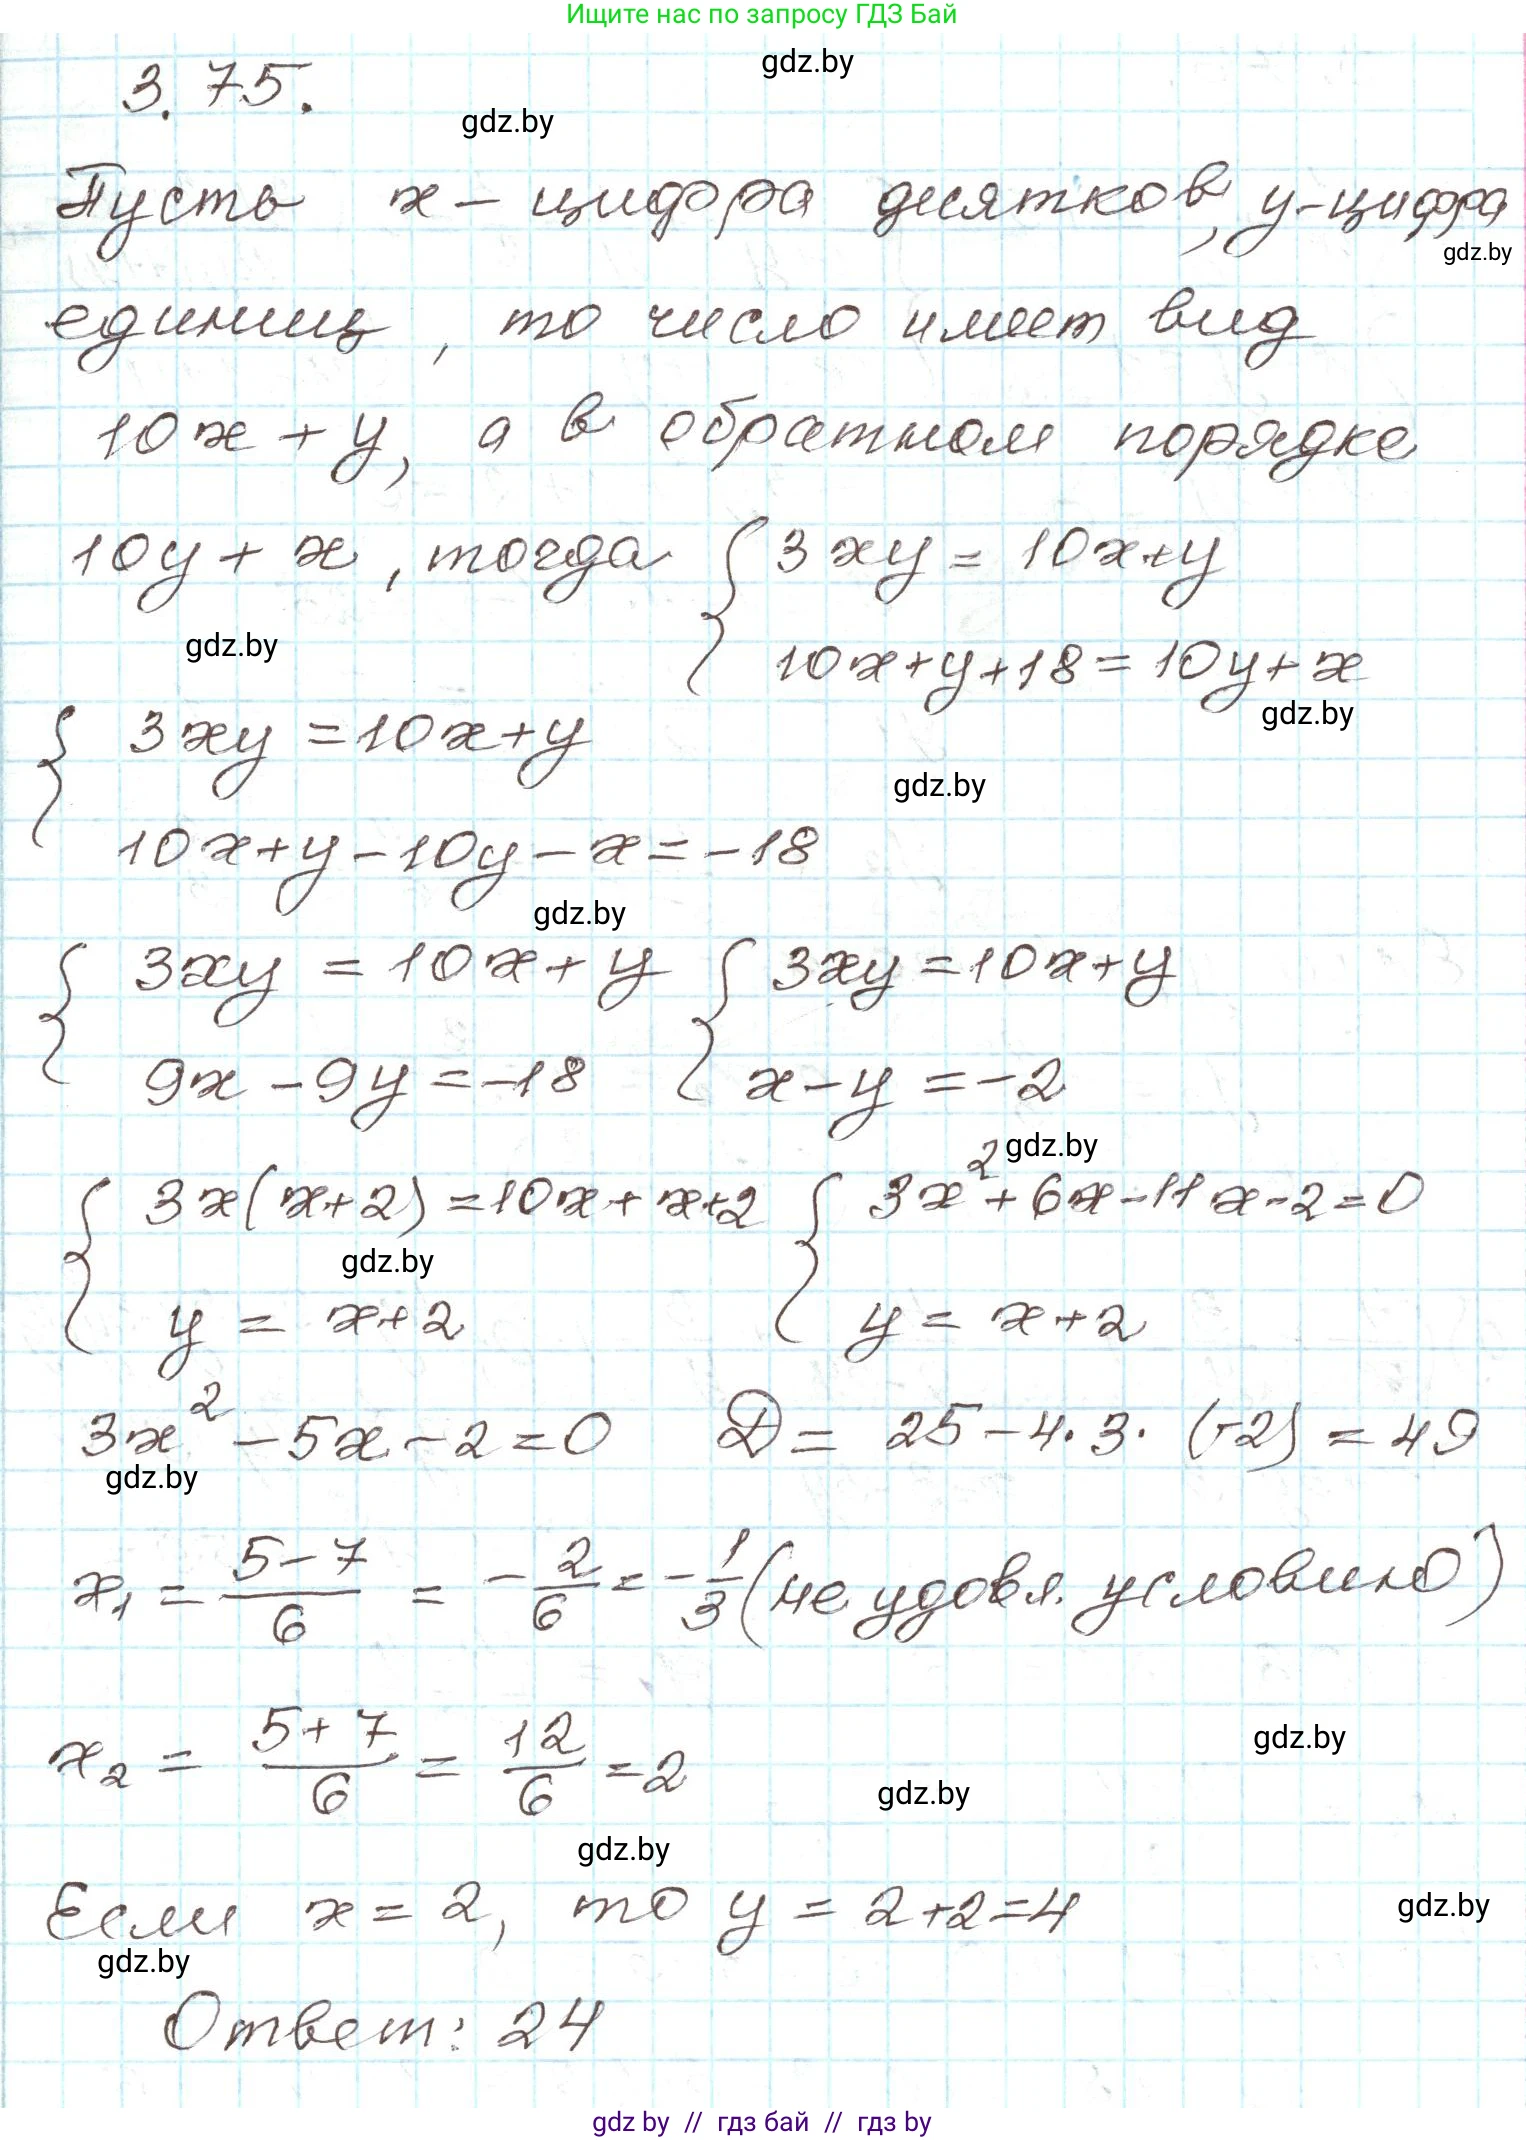 Ищите нас по запросу ГДЗ Бай
gdz.by
3.75.
gdz.by
Пусть x - цифра десятков, y - цифра
gdz.by
единиц, то число имеет вид
10x + y, а в обратном порядке
10y + x, тогда { 3xy = 10x + y
10x + y + 18 = 10y + x
gdz.by
gdz.by
{ 3xy = 10x + y
gdz.by
10x + y - 10y - x = -18
gdz.by
{ 3xy = 10x + y { 3xy = 10x + y
9x - 9y = -18 x - y = -2
gdz.by
{ 3x(x + 2) = 10x + x + 2 { 3x² + 6x - 11x - 2 = 0
gdz.by
y = x + 2 y = x + 2
3x² - 5x - 2 = 0 D = 25 - 4 · 3 · (-2) = 49
gdz.by
x₁ = (5 - 7)/6 = -2/6 = -1/3 (не удовл. условию)
x₂ = (5 + 7)/6 = 12/6 = 2
gdz.by
gdz.by
gdz.by
Если x = 2, то y = 2 + 2 = 4
gdz.by
gdz.by
Ответ: 24
gdz by // гдз бай // гдз by